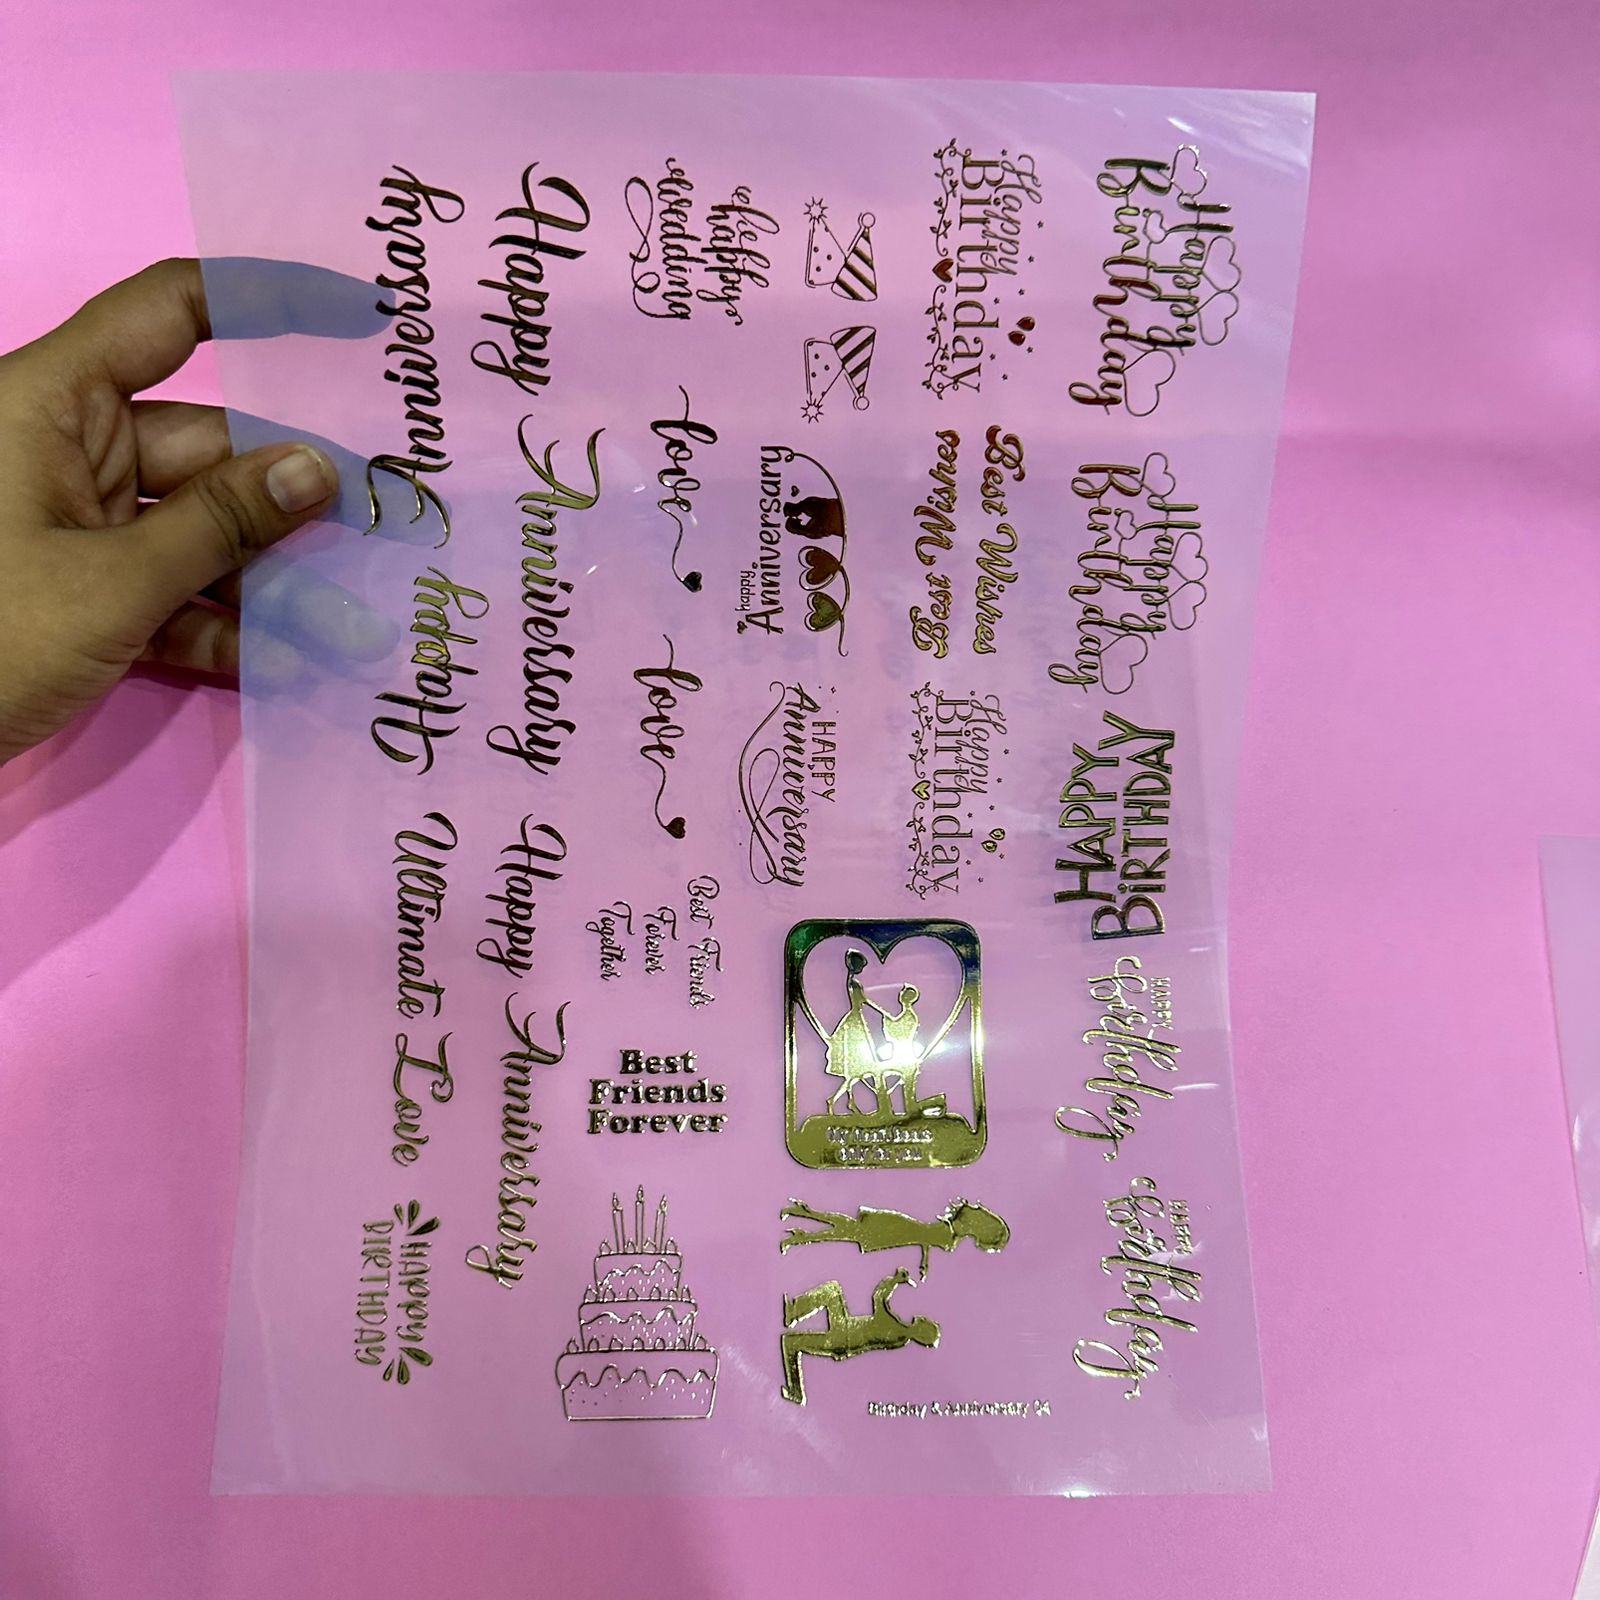 Happy
Birthday
Happy
Birthday
HAPPY
BiRTHDAY
HAPPY
Birthday
HAPPY
Birthday
Happy
Birthday
Best Wishes
Best Wishes
Happy
Birthday
Anniversary
Happy
HAPPY
Anniversary
only for you
Birthday & Anniversary 04
happy
wedding
love
love
Best Friends
Forever
Together
Best
Friends
Forever
Happy Anniversary
Happy Anniversary
Happy Anniversary
Ultimate Love
HAPPY
BIRTHDAY